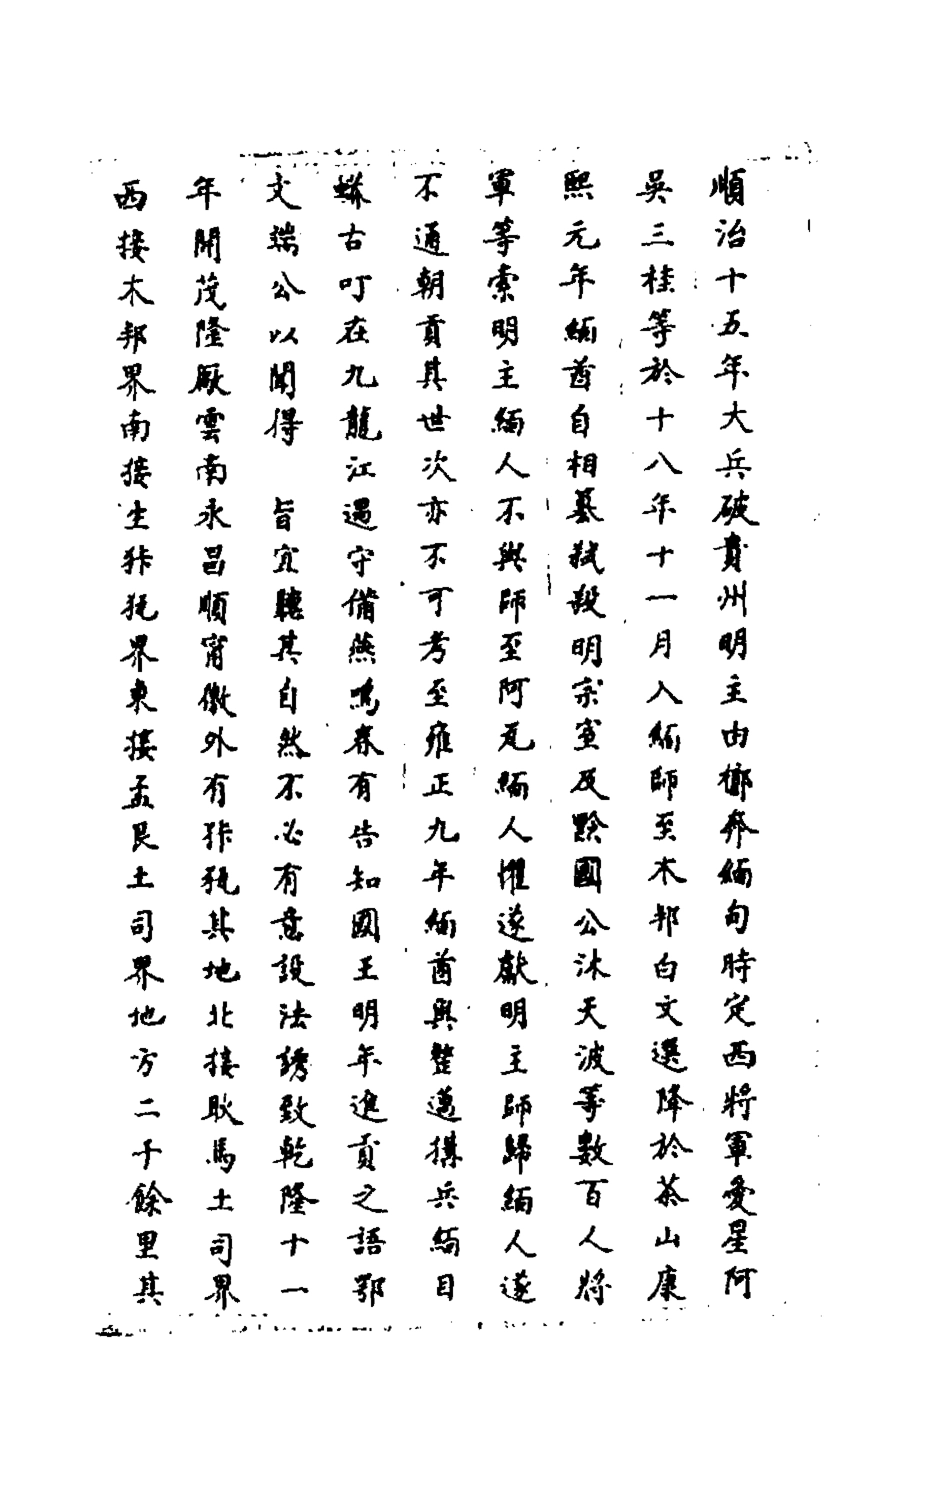 順治十五年大兵破貴州明主由榔奔緬甸時定西將軍愛星阿
吳三桂等於十八年十一月入緬師至木邦白文選降於茶山康
熙元年緬酋自相篡弒殺明宗室及黔國公沐天波等數百人將
軍等索明主緬人不與師至阿瓦緬人懼遂獻明主師歸緬人遂
不通朝貢其世次亦不可考至雍正九年緬酋與整邁搆兵緬目
蟒古叮在九龍江遇守備燕鳴春有告知國王明年進貢之語鄂
文端公以聞得　旨宜聽其自然不必有意設法誘致乾隆十一
年開茂隆厰雲南永昌順甯徼外有㹳㹭其地北接耿馬土司界
西接木邦界南接生㹳㹭界東接孟艮土司界地方二千餘里其